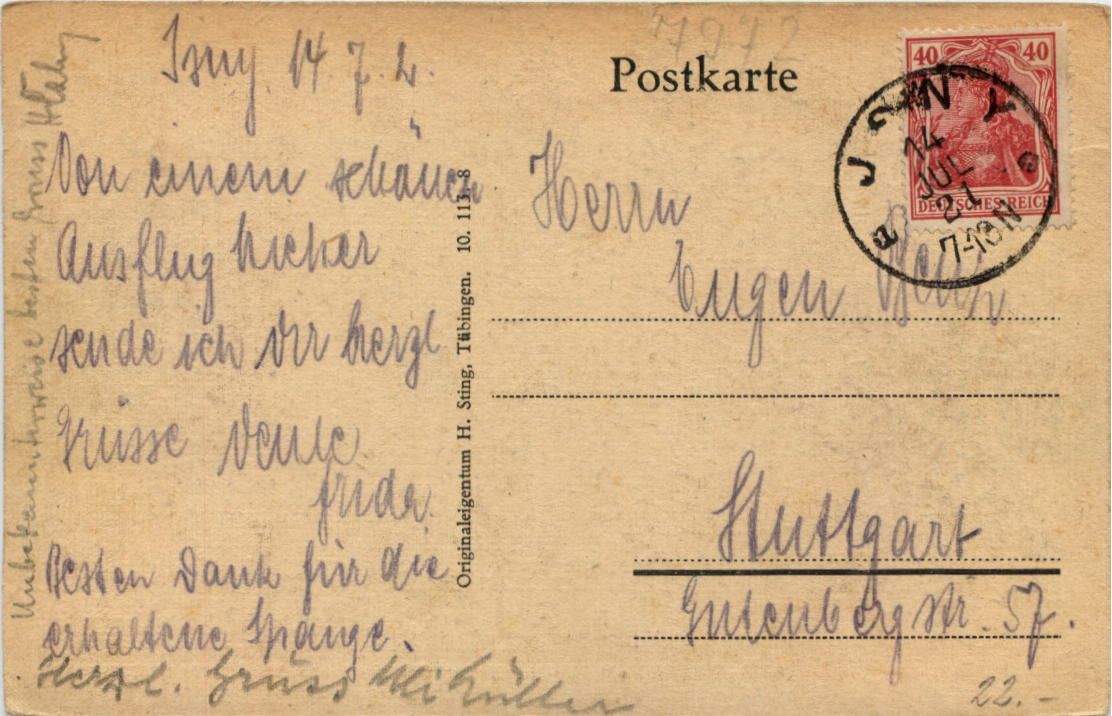 7972
Isny 14. 7. 21.
Von einem schönen
Ausflug hieher
sende ich Dir herzl
Grüsse Deine
Frida.
Besten Dank für die
erhaltene Spange.
Herzl. Gruss Müller
Unbekannterweise besten Gruss
Originaleigentum H. Sting, Tübingen. 10. 113-8
Postkarte
40 40
DEUTSCHES REICH
ISNY
14
JUL
21
Herrn
Eugen
Stuttgart
Gutenbergstr. 57.
22.-